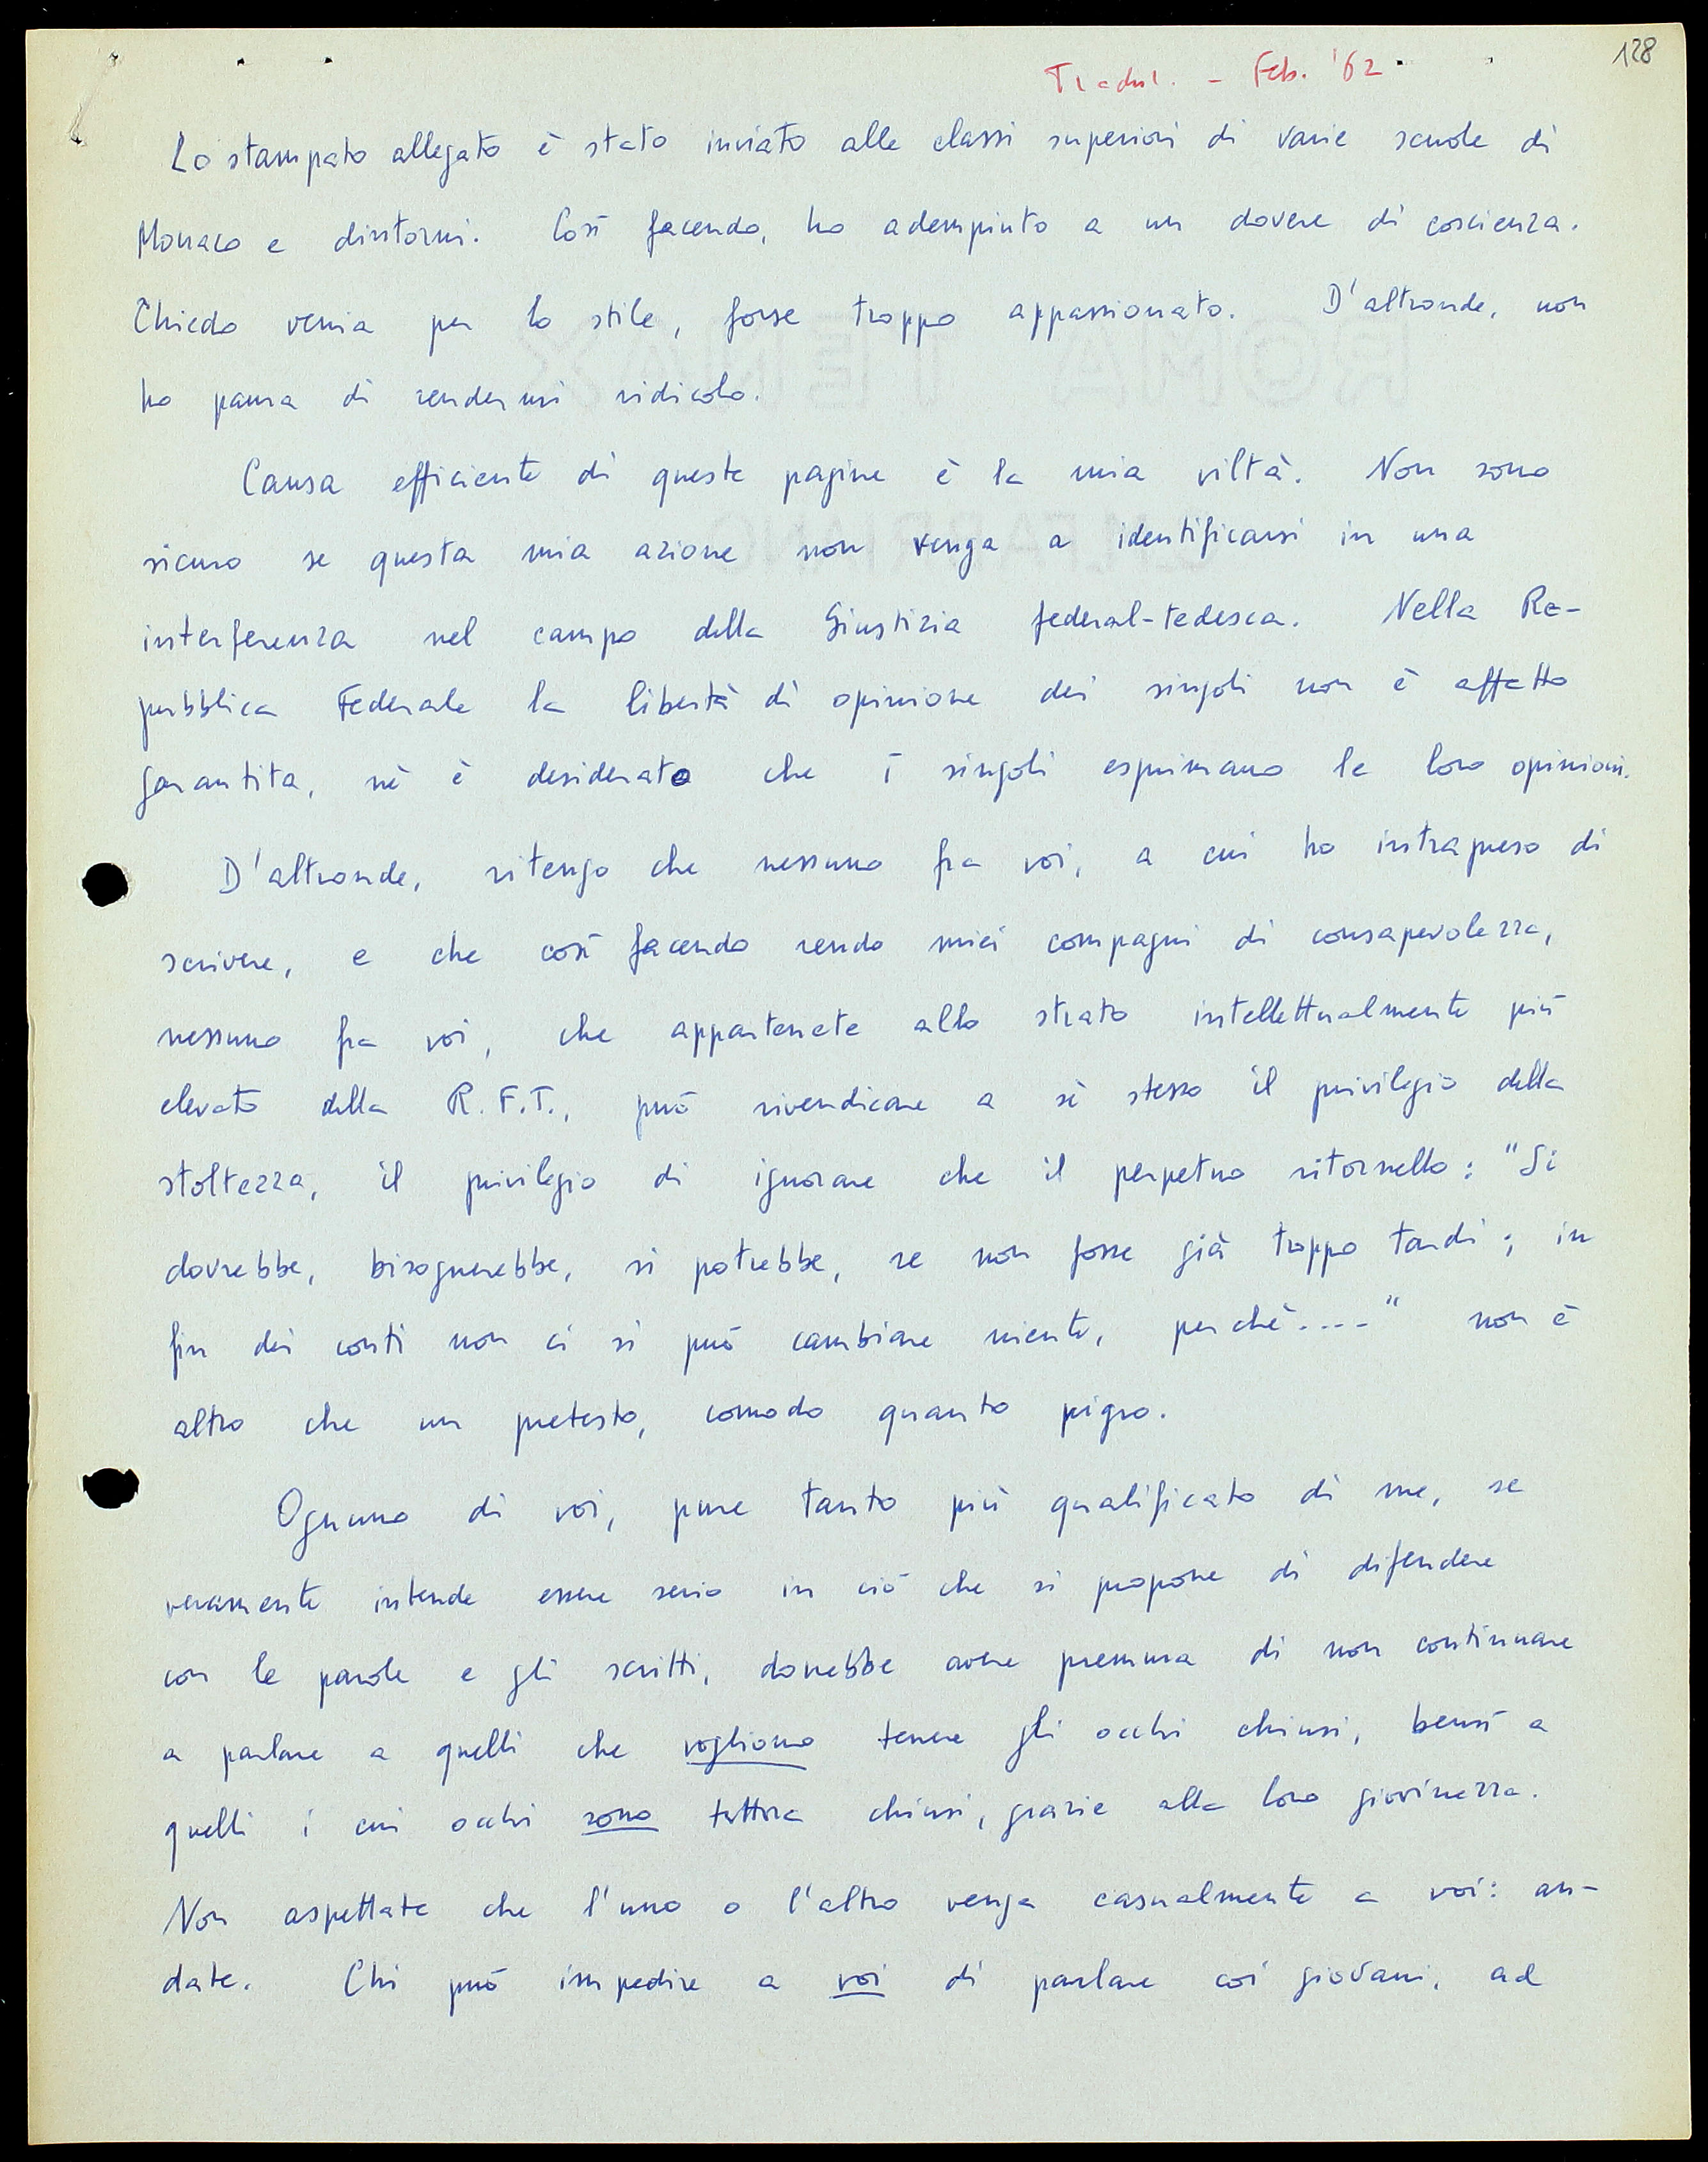 128
Tradul. - Feb. '62
Lo stampato allegato è stato inviato alle classi superiori di varie scuole di
Monaco e dintorni. Così facendo, ho adempiuto a un dovere di coscienza.
Chiedo venia per lo stile, forse troppo appassionato. D'altronde, non
ho paura di rendermi ridicolo.
Causa efficiente di queste pagine è la mia viltà. Non sono
sicuro se questa mia azione non venga a identificarsi in una
interferenza nel campo della Giustizia federal-tedesca. Nella Re-
pubblica Federale la libertà di opinione dei singoli non è affatto
garantita, nè è desiderato che i singoli esprimano le loro opinioni.
D'altronde, ritengo che nessuno fra voi, a cui ho intrapreso di
scrivere, e che così facendo rendo miei compagni di consapevolezza,
nessuno fra voi, che appartenete allo strato intellettualmente più
elevato della R.F.T., può rivendicare a sè stesso il privilegio della
stoltezza, il privilegio di ignorare che il perpetuo ritornello: "Si
dovrebbe, bisognerebbe, si potrebbe, se non fosse già troppo tardi; in
fin dei conti non ci si può cambiare niente, perchè...." non è
altro che un pretesto, comodo quanto pigro.
Ognuno di voi, pure tanto più qualificato di me, se
veramente intende essere serio in ciò che si propone di difendere
con le parole e gli scritti, dovrebbe avere premura di non continuare
a parlare a quelli che vogliono tenere gli occhi chiusi, bensì a
quelli i cui occhi sono tuttora chiusi, grazie alla loro giovinezza.
Non aspettate che l'uno o l'altro venga casualmente a voi: an-
date. Chi può impedire a voi di parlare coi giovani, ad